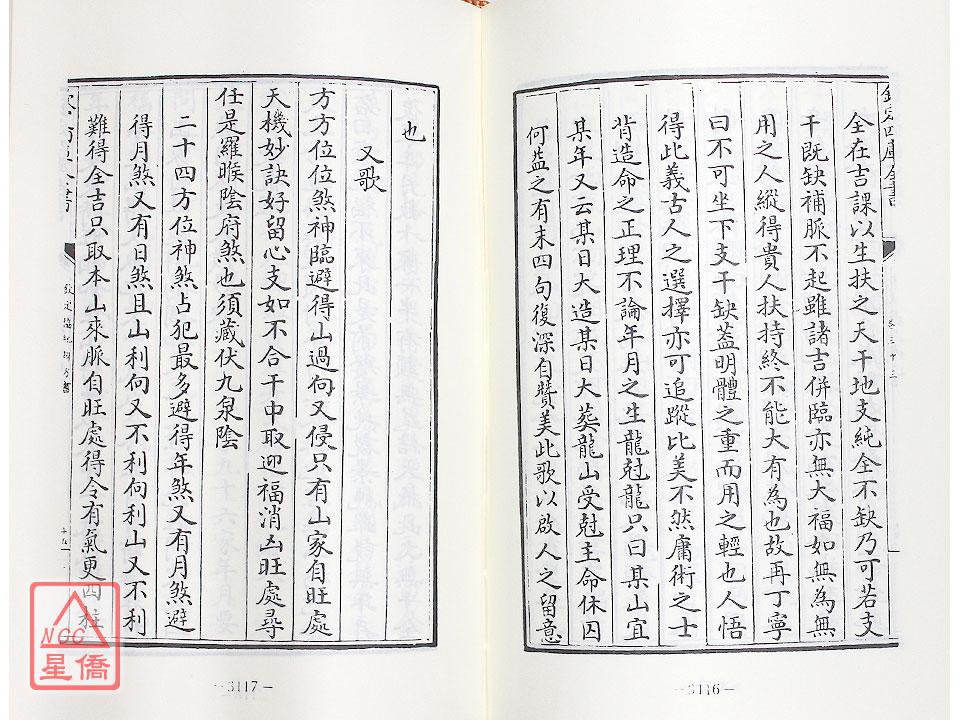 欽定四庫全書
卷三十三
全在吉課以生扶之天干地支純全不缺乃可若支
干既缺補脈不起雖諸吉併臨亦無大福如無為無
用之人縱得貴人扶持終不能大有為也故再丁寧
曰不可坐下支干缺蓋明體之重而用之輕也人悟
得此義古人之選擇亦可追蹤比美不然庸術之士
背造命之正理不論年月之生龍尅龍只曰某山宜
某年又云某日大造某日大葬龍山受尅主命休囚
何益之有末四句復深自贊美此歌以啟人之留意
-3116-
也
又歌
方方位位煞神臨避得山過向又侵只有山家自旺處
天機妙訣好留心支如不合干中取迎福消凶旺處尋
任是羅睺陰府煞也須藏伏九泉陰
二十四方位神煞占犯最多避得年煞又有月煞避
得月煞又有日煞且山利向又不利向利山又不利
難得全吉只取本山來脈自旺處得令有氣更四柱
欽定四庫全書
欽定協紀辨方書
十五
-3117-
NCC
星僑